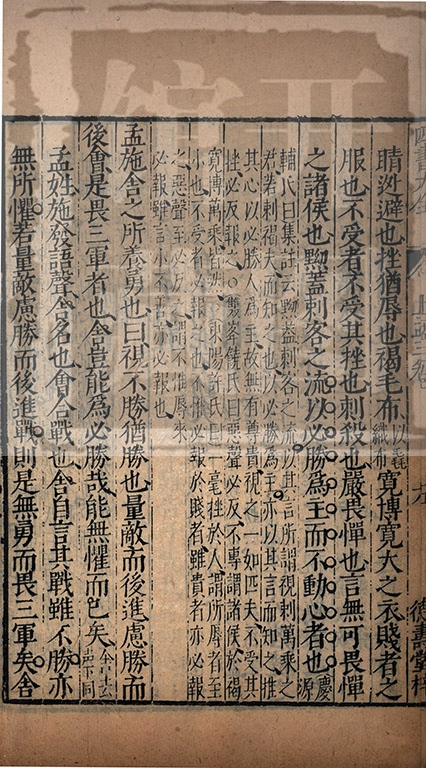 德壽堂梓
睛逃避也挫猶辱也褐毛布以毳織布寬博寬大之衣賤者之
服也不受者不受其挫也刺殺也嚴畏憚也言無可畏憚
之諸侯也黝蓋刺客之流以必勝為主而不動心者也慶源
輔氏曰集註云黝蓋刺客之流以其言所謂視刺萬乘之
君若刺褐夫而知之也以必勝為主亦以其言而知之惟
其心以必勝人為主故無有尊貴視之一如匹夫不受其
挫必反報之○雙峯饒氏曰惡聲必反不專謂諸侯於褐
寬博萬乘皆然○東陽許氏曰一毫挫於人謂所辱者至
小也不受者必報也不惟必報於賤者雖貴者亦必報
之惡聲至必反之謂不惟辱來
必報雖言小不善亦必報也
孟施舍之所養勇也曰視不勝猶勝也量敵而後進慮勝而
後會是畏三軍者也舍豈能為必勝哉能無懼而已矣舍去聲下同
孟姓施發語聲舍名也會合戰也舍自言其戰雖不勝亦
無所懼若量敵慮勝而後進戰則是無勇而畏三軍矣舍